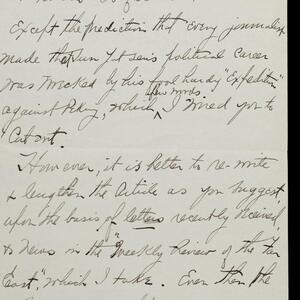 Except the prediction that "every journalist
made that Sun Yat sen's political career
was wrecked by his fool hardy "Expedition"
few words.
against Peking, which I wired you to
"Cut out.
However, it is better to re-write
& lengthen the Article as you suggest,
upon the basis of letters recently received,
& News in the "Weekly Review of the Far
East", which I take. Even then the